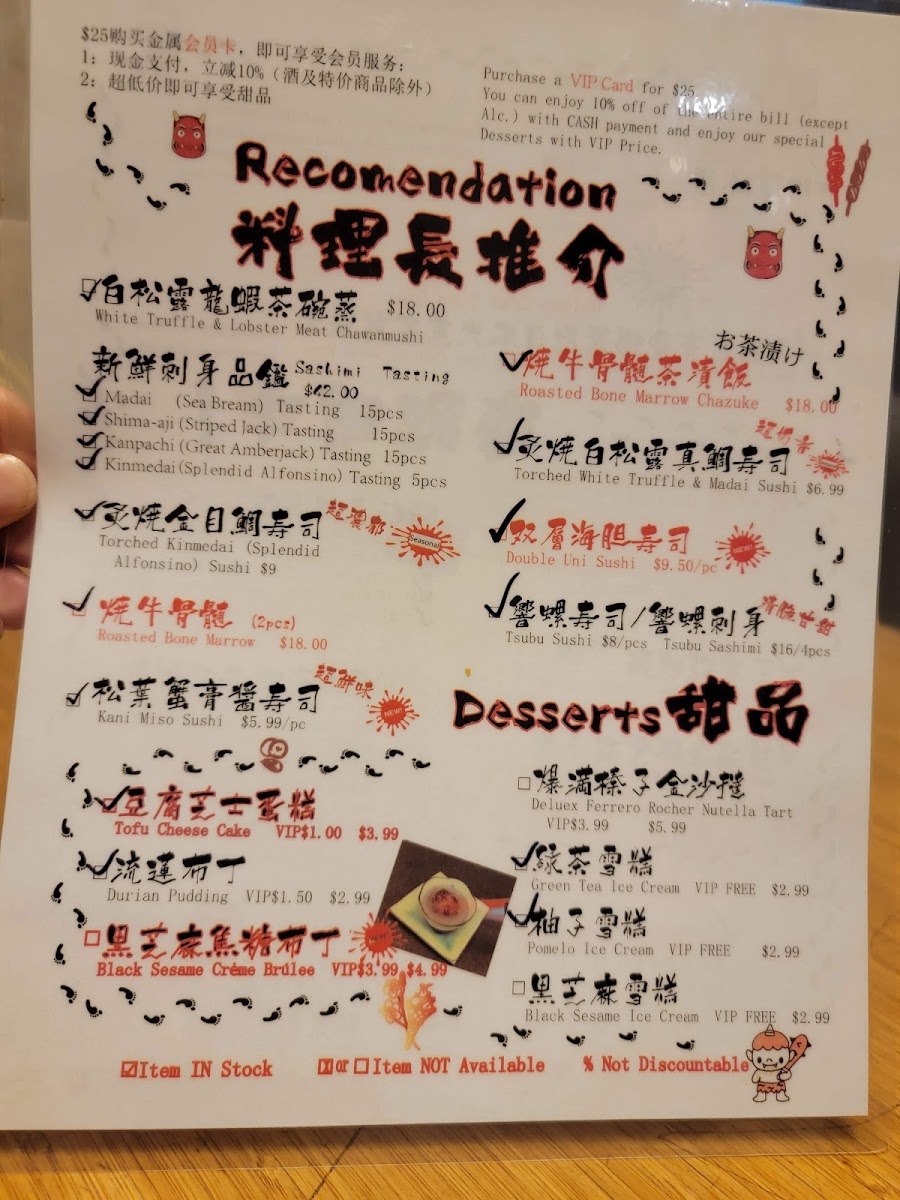 $25购买金属会员卡，即可享受会员服务：
1：现金支付，立减10%（酒及特价商品除外）
2：超低价即可享受甜品
Purchase a VIP Card for $25
You can enjoy 10% off of the entire bill (except
Alc.) with CASH payment and enjoy our special
Desserts with VIP Price.
Recomendation
料理長推介
白松露龍蝦茶碗蒸 $18.00
White Truffle & Lobster Meat Chawanmushi
新鮮刺身品鑑 Sashimi Tasting
$62.00
Madai (Sea Bream) Tasting 15pcs
Shima-aji (Striped Jack) Tasting 15pcs
Kanpachi (Great Amberjack) Tasting 15pcs
Kinmedai (Splendid Alfonsino) Tasting 5pcs
炙焼金目鯛寿司 超濃郁 Seasonal
Torched Kinmedai (Splendid
Alfonsino) Sushi $9
焼牛骨髓 (2pcs)
Roasted Bone Marrow $18.00
松葉蟹膏醬寿司 超鮮味 NEW!
Kani Miso Sushi $5.99/pc
お茶漬け
焼牛骨髓茶漬飯
Roasted Bone Marrow Chazuke $18.00
炙焼白松露真鯛寿司
Torched White Truffle & Madai Sushi $6.99
双層海胆寿司 NEW!
Double Uni Sushi $9.50/pc
響螺寿司/響螺刺身 清脆甘甜
Tsubu Sushi $8/pcs Tsubu Sashimi $16/4pcs
Desserts甜品
豆腐芝士蛋糕
Tofu Cheese Cake VIP$1.00 $3.99
流蓮布丁
Durian Pudding VIP$1.50 $2.99
黒芝麻焦糖布丁 NEW!
Black Sesame Créme Brúlee VIP$3.99 $4.99
爆滿榛子金沙撻
Deluex Ferrero Rocher Nutella Tart
VIP$3.99 $5.99
緑茶雪糕
Green Tea Ice Cream VIP FREE $2.99
柚子雪糕
Pomelo Ice Cream VIP FREE $2.99
黒芝麻雪糕
Black Sesame Ice Cream VIP FREE $2.99
☑Item IN Stock ☒or☐Item NOT Available % Not Discountable